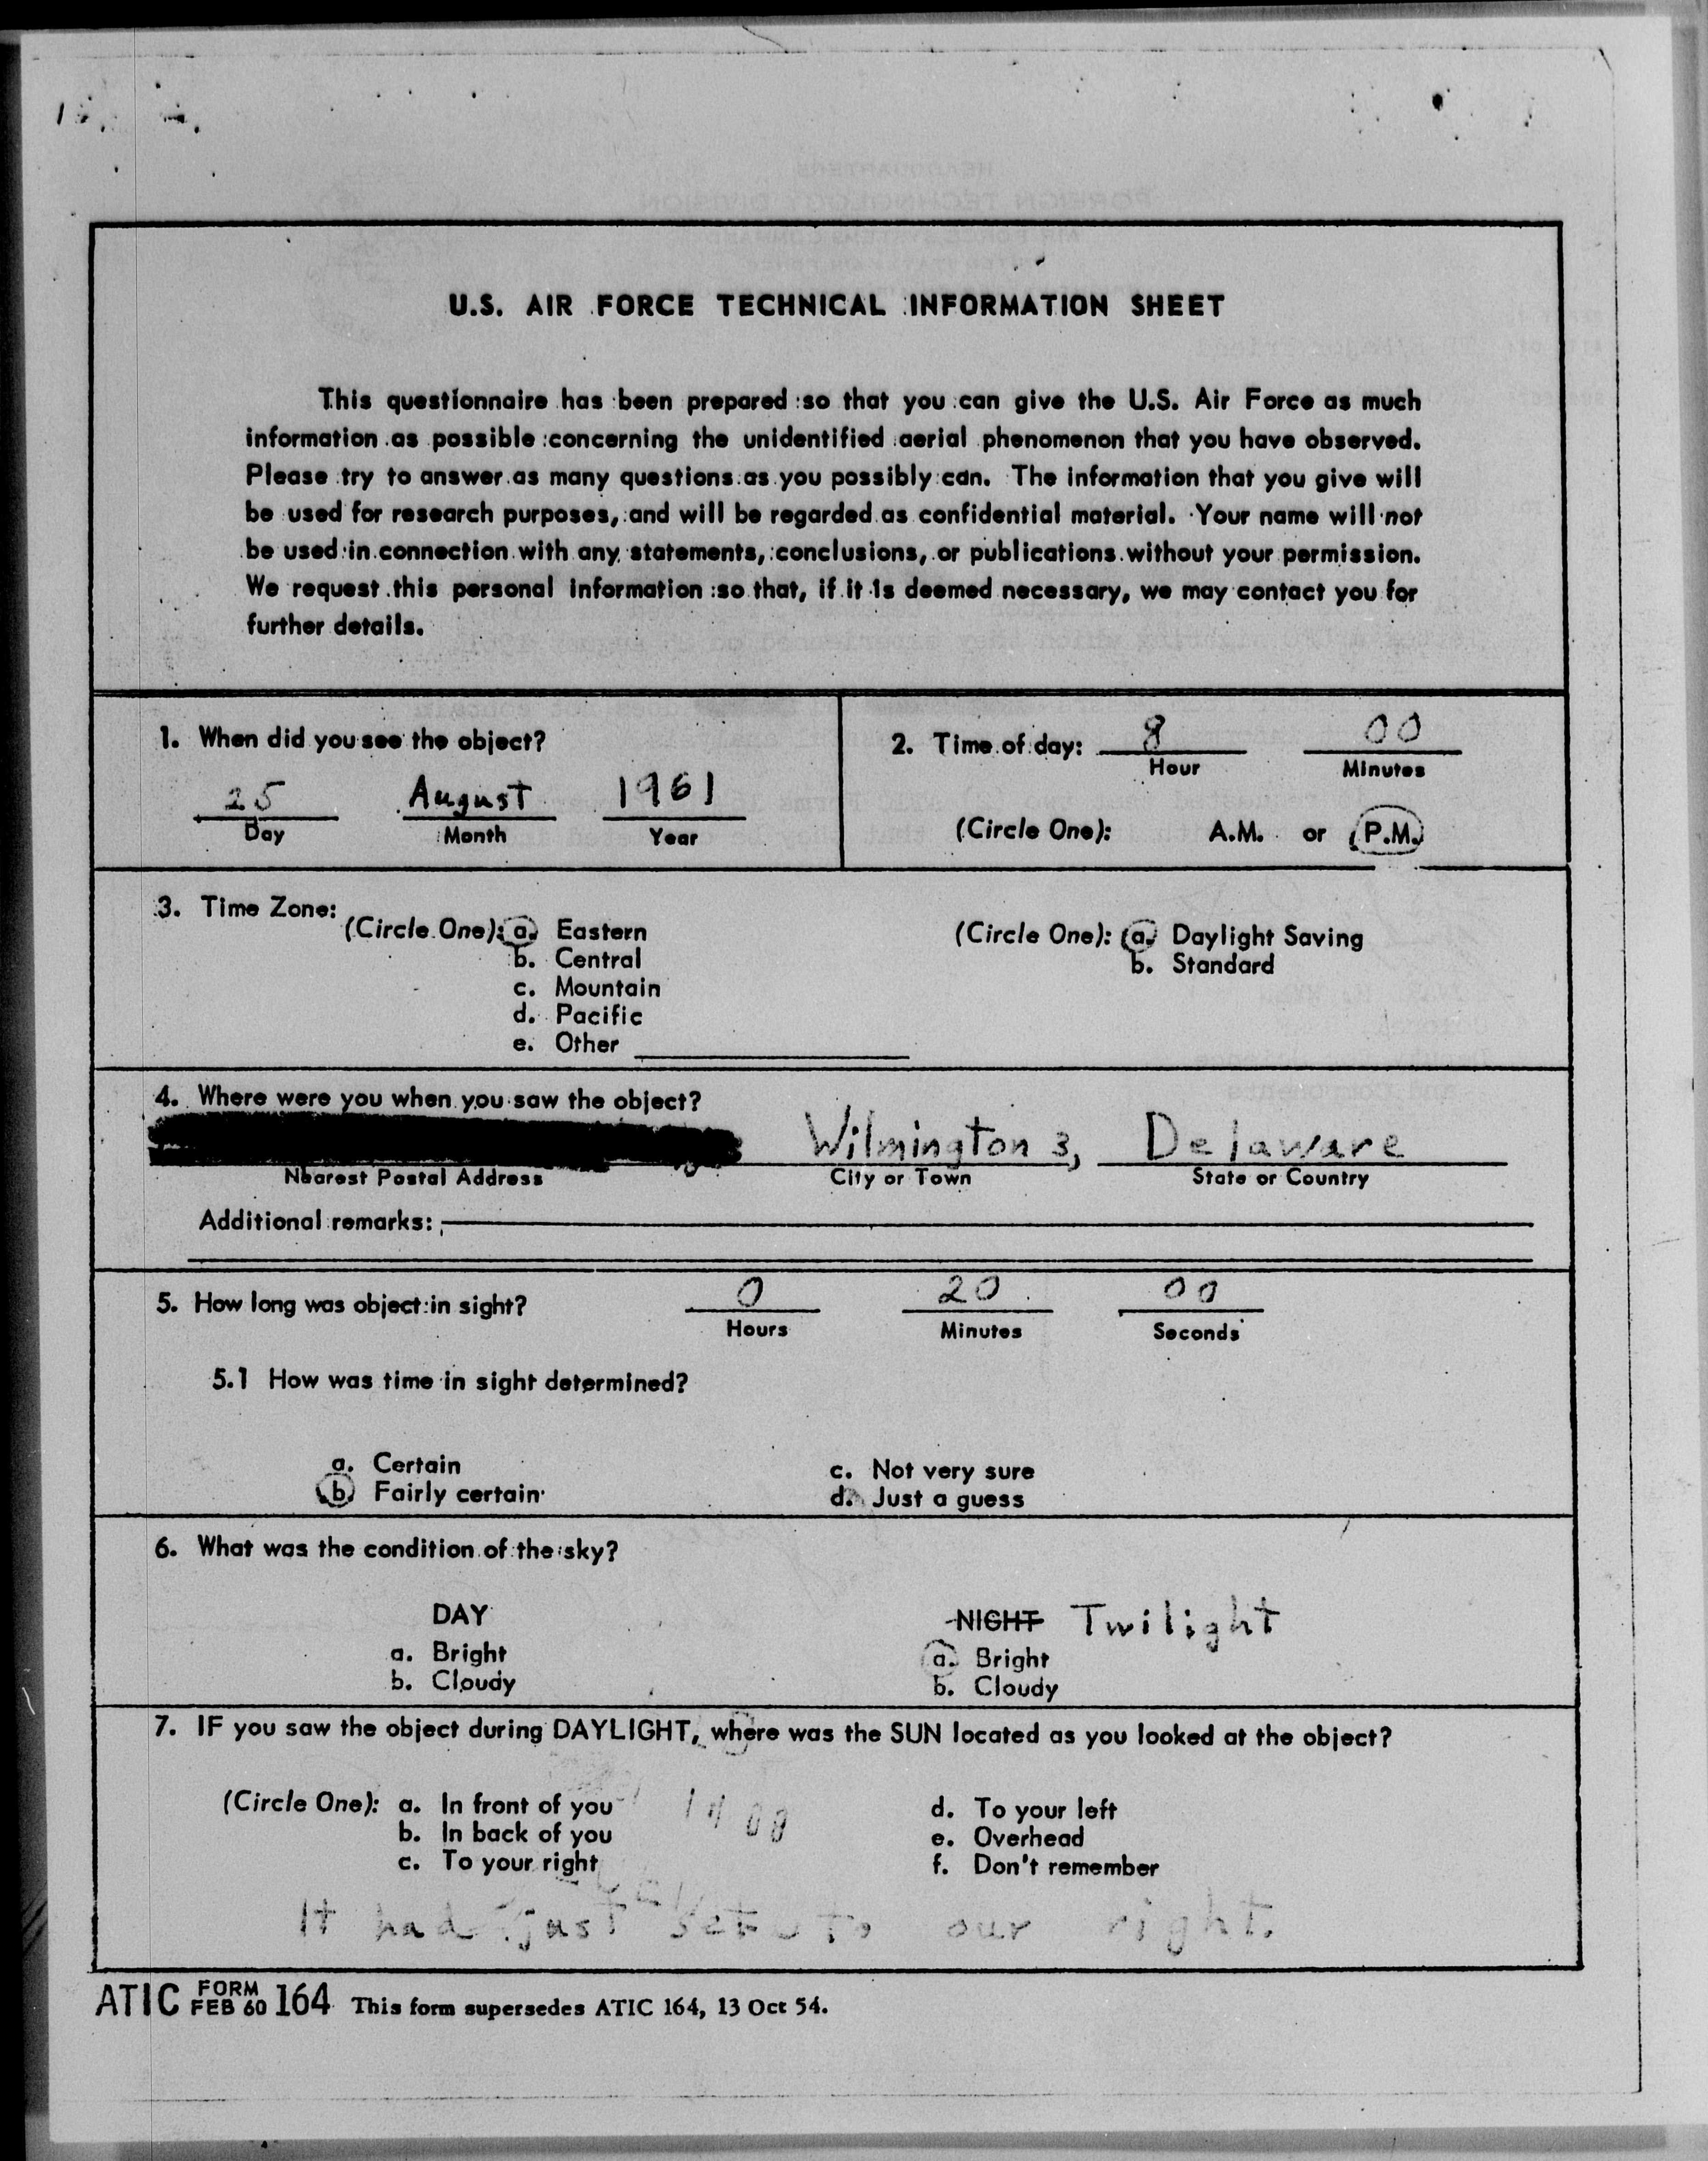 U.S. AIR FORCE TECHNICAL INFORMATION SHEET
This questionnaire has been prepared so that you can give the U.S. Air Force as much
information as possible concerning the unidentified aerial phenomenon that you have observed.
Please try to answer as many questions as you possibly can. The information that you give will
be used for research purposes, and will be regarded as confidential material. Your name will not
be used in connection with any statements, conclusions, or publications without your permission.
We request this personal information so that, if it is deemed necessary, we may contact you for
further details.
1. When did you see the object?
25 August 1961
Day Month Year
2. Time of day: 8 00
Hour Minutes
(Circle One): A.M. or P.M.
3. Time Zone:
(Circle One): a. Eastern
b. Central
c. Mountain
d. Pacific
e. Other
(Circle One): a. Daylight Saving
b. Standard
4. Where were you when you saw the object?
Wilmington 3, Delaware
Nearest Postal Address City or Town State or Country
Additional remarks:
5. How long was object in sight? 0 20 00
Hours Minutes Seconds
5.1 How was time in sight determined?
a. Certain
b. Fairly certain
c. Not very sure
d. Just a guess
6. What was the condition of the sky?
DAY
a. Bright
b. Cloudy
NIGHT Twilight
a. Bright
b. Cloudy
7. IF you saw the object during DAYLIGHT, where was the SUN located as you looked at the object?
(Circle One): a. In front of you
b. In back of you
c. To your right
d. To your left
e. Overhead
f. Don't remember
It had just set to our right.
ATIC FORM FEB 60 164 This form supersedes ATIC 164, 13 Oct 54.